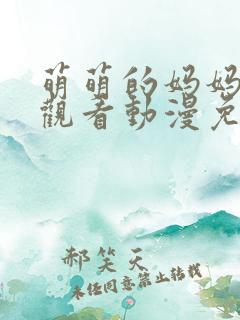 萌萌的妈妈
觀看動漫免
郝笑天
未经同意禁止转载